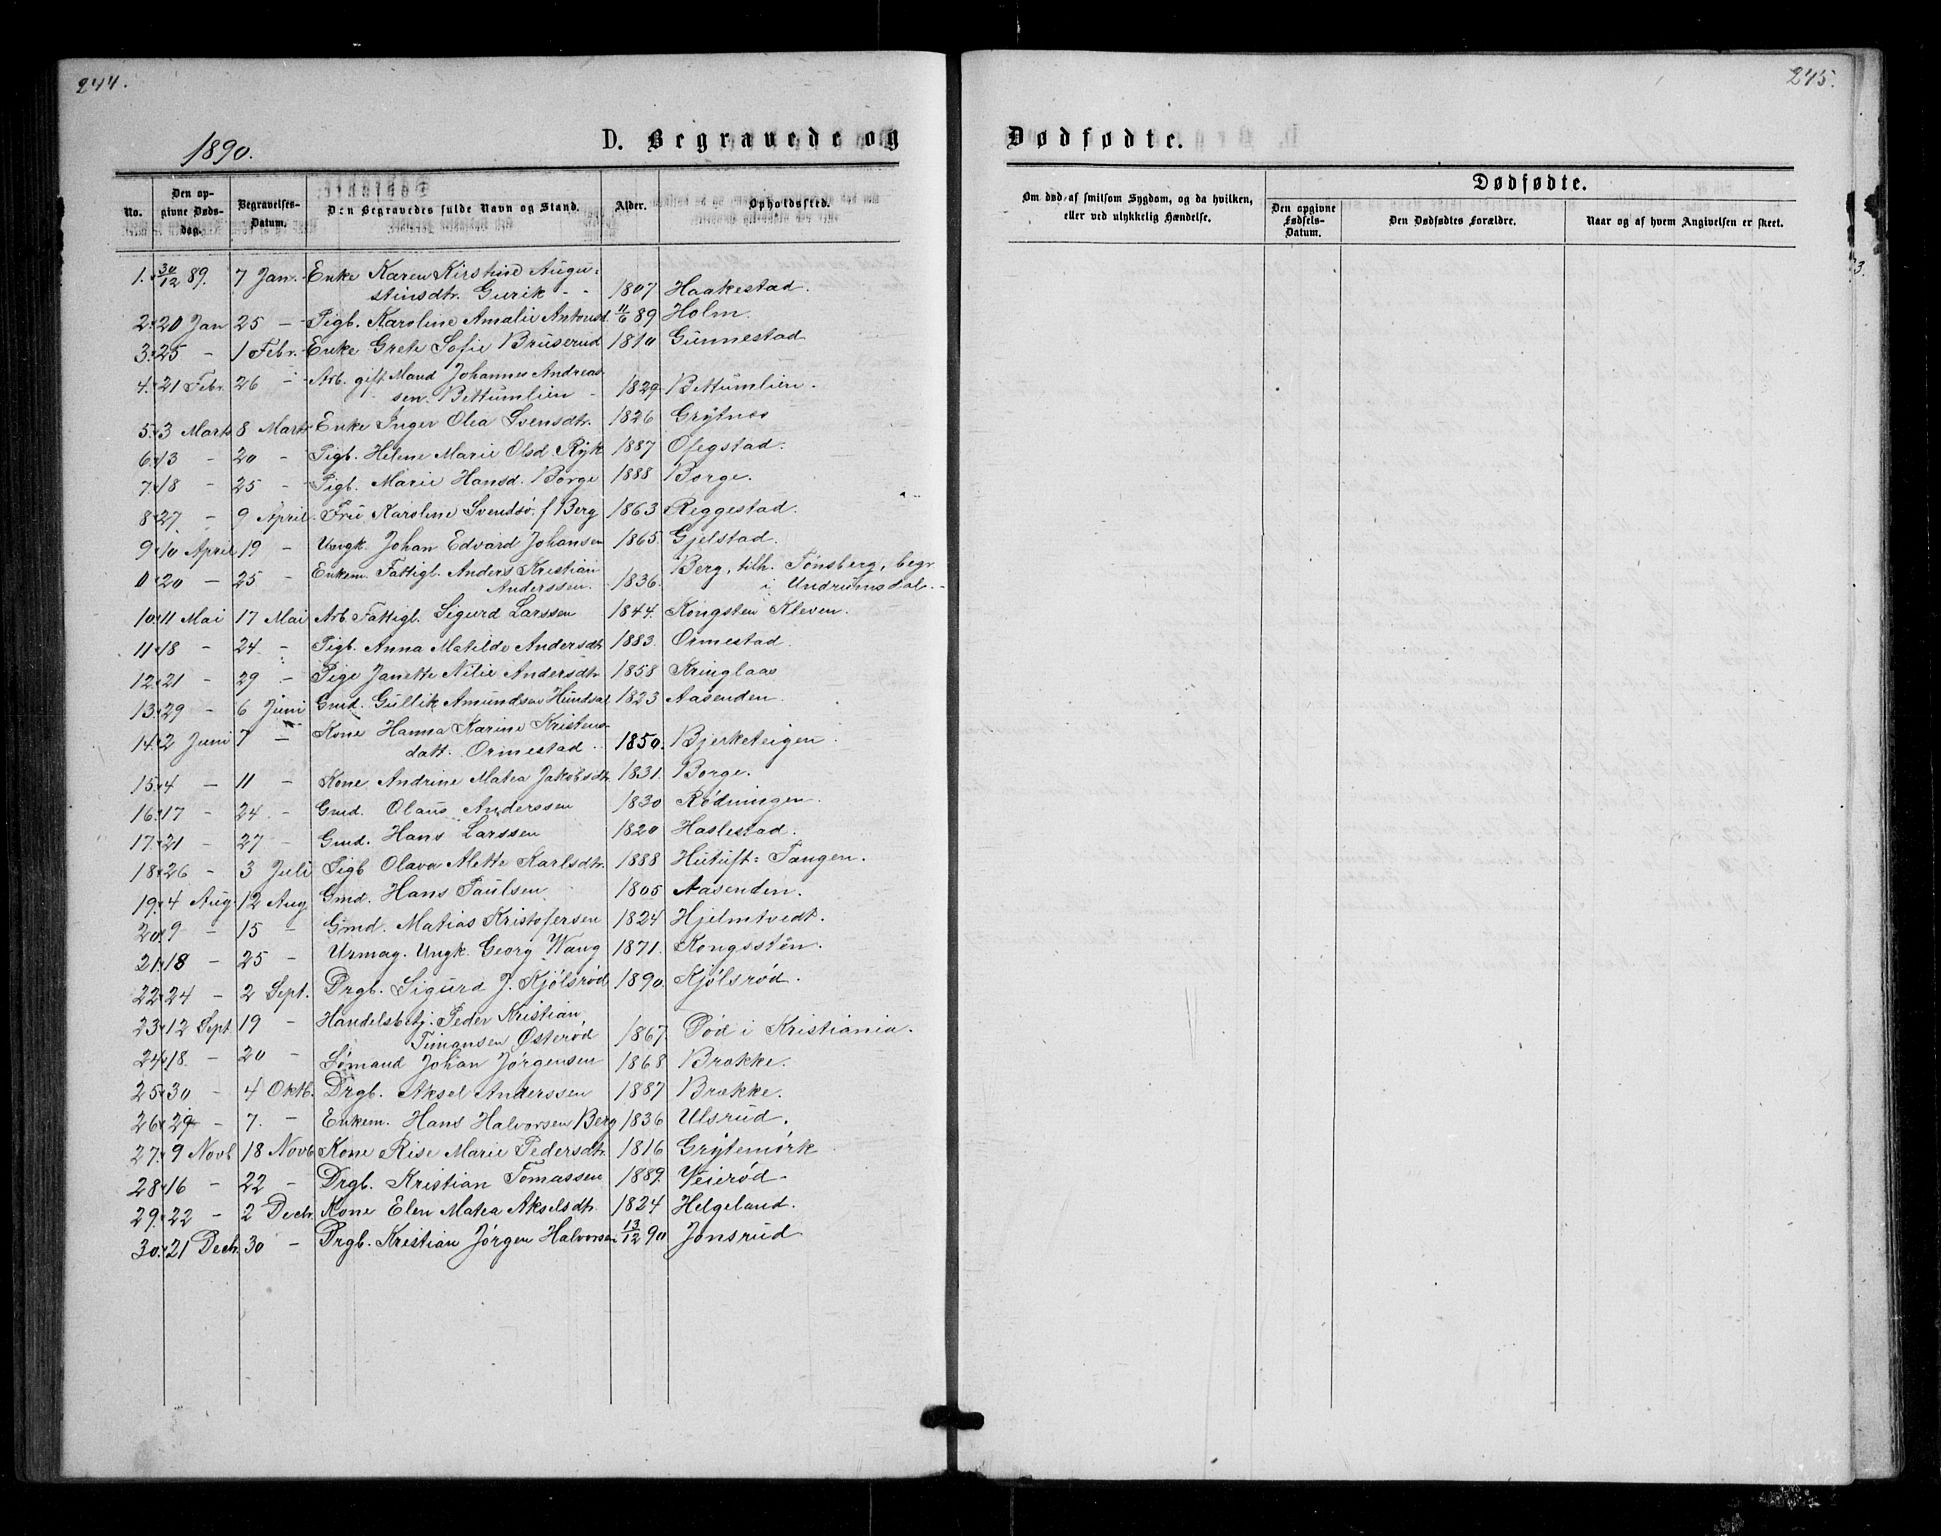 244.
1890.
D. Begravede og
No.
Den op-
givne Døds-
dag.
Begravelses-
Datum.
Den Begravedes fulde Navn og Stand.
Alder.
Opholdssted.
1. 30/12 89. 7 Jan. Enke Karen Kirstine Augu-
stinsdtr. Gurik - - 1807 Haakestad.
2. 20 Jan 25 - Pigb. Karoline Amalie Antonsd 11/6 89 Holm.
3. 25 - 1 Febr. Enke Grete Sofie Bruserud 1810 Gunnestad
4. 21 Febr. 26 - Arb. gift Mand Johannes Andreas-
sen. Bettumlien - 1829 Bettumlien.
5. 3 Marts 8 Marts Enke Inger Olea Svensdtr. 1826 Grytnes
6. 13 - 20 - Pigb. Helene Marie Olsd. Ryk 1887 Ofegstad.
7. 18 - 25 - Pigb. Marie Hansd. Borge 1888 Borge.
8. 27 - 9 April. Fru Karoline Svendsø. f Berg 1863 Reggestad.
9. 10 April 19 - Ungk. Johan Edvard Johansen 1865. Gjelstad.
0. 20 - 25 - Enkem. Fattigl. Anders Kristian
Anderssen. 1836. Berg, tilh. Tønsberg, begr
i Undrumsdal.
10. 11 Mai 17 Mai Arb. Fattigl. Sigurd Larssen 1844. Kongsten Kleven.
11. 18 - 24. - Pigb. Anna Matilde Andersdtr 1883. Ormestad.
12. 21 - 29 - Pige Janette Nilie Andersdtr 1858 Kringlaas
13. 29 - 6 Juni Gmd. Gullik Amundsen Hundsal 1823 Aasenden.
14. 2 Juni 7 - Kone Hanna Karine Kristens-
datt. Ormestad. 1850. Bjerketeigen.
15. 4 - 11 - Kone Andrine Matea Jakobsdtr. 1831. Borge.
16. 17 - 24 - Gmd. Olaus Anderssen 1830 Rødningen.
17. 21 - 27 - Gmd. Hans Larssen 1820 Haslestad.
18. 26 - 3 Juli Pigb Olava Alette Karlsdtr. 1888 Hutuft= Tangen.
19. 4 Aug. 12 Aug Gmd. Hans Paulsen 1805 Aasenden.
20. 9 - 15 - Gmd. Matias Kristofersen 1824 Hjelmtvedt.
21. 18 - 25 - Urmag. Ungk. Georg Wang 1871. Kongsstèn.
22. 24 - 2 Sept. Drgb. Sigurd J. Kjølsrød 1890. Kjølsrød.
23. 12 Sept 19 - Handelsbetj. Peder Kristian
Timansen Østerød 1867. Død i Kristiania.
24. 18. - 20 - Sømand Johan Jørgensen 1868 Brække.
25. 30 - 4 Oktb. Drgb. Aksel Anderssen 1887 Brække.
26. 29 - 7. - Enkem. Hans Halvorsen Berg 1836 Ulsrud.
27. 9 Novb 18 Novb. Kone Rise Marie Pedersdtr. 1816 Grytemørk
28. 16 - 22 - Drgb. Kristian Tomassen 1889. Veierød.
29. 22 - 2 Decb. Kone Elen Matea Akselsdtr. 1824 Helgeland.
30. 21 Decb. 30 - Drgb. Kristian Jørgen Halvorsen 13/12 90 Jonsrud
245.
Dødfødte.
Om død af smitsom Sygdom, og da hvilken,
eller ved ulykkelig Hændelse.
Dødfødte.
Den opgivne
Fødsels-
Datum.
Den Dødfødtes Forældre.
Naar og af hvem Angivelsen er skeet.
3.